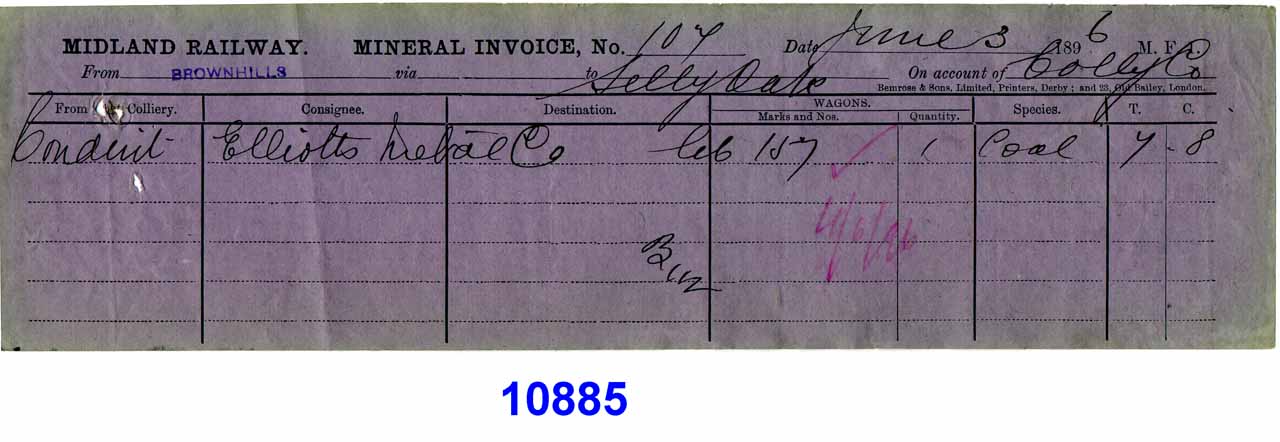 MIDLAND RAILWAY. MINERAL INVOICE, No. 107 Date June 3 1896 M. F. A.
From BROWNHILLS via to Selly Oak On account of Colly Co
Bemrose & Sons, Limited, Printers, Derby ; and 23, Old Bailey, London.
From Colliery. Consignee. Destination. WAGONS. Species. T. C.
Marks and Nos. Quantity.
Conduit Elliotts Metal Co 157 1 Coal 7 - 8
4/6/96
10885